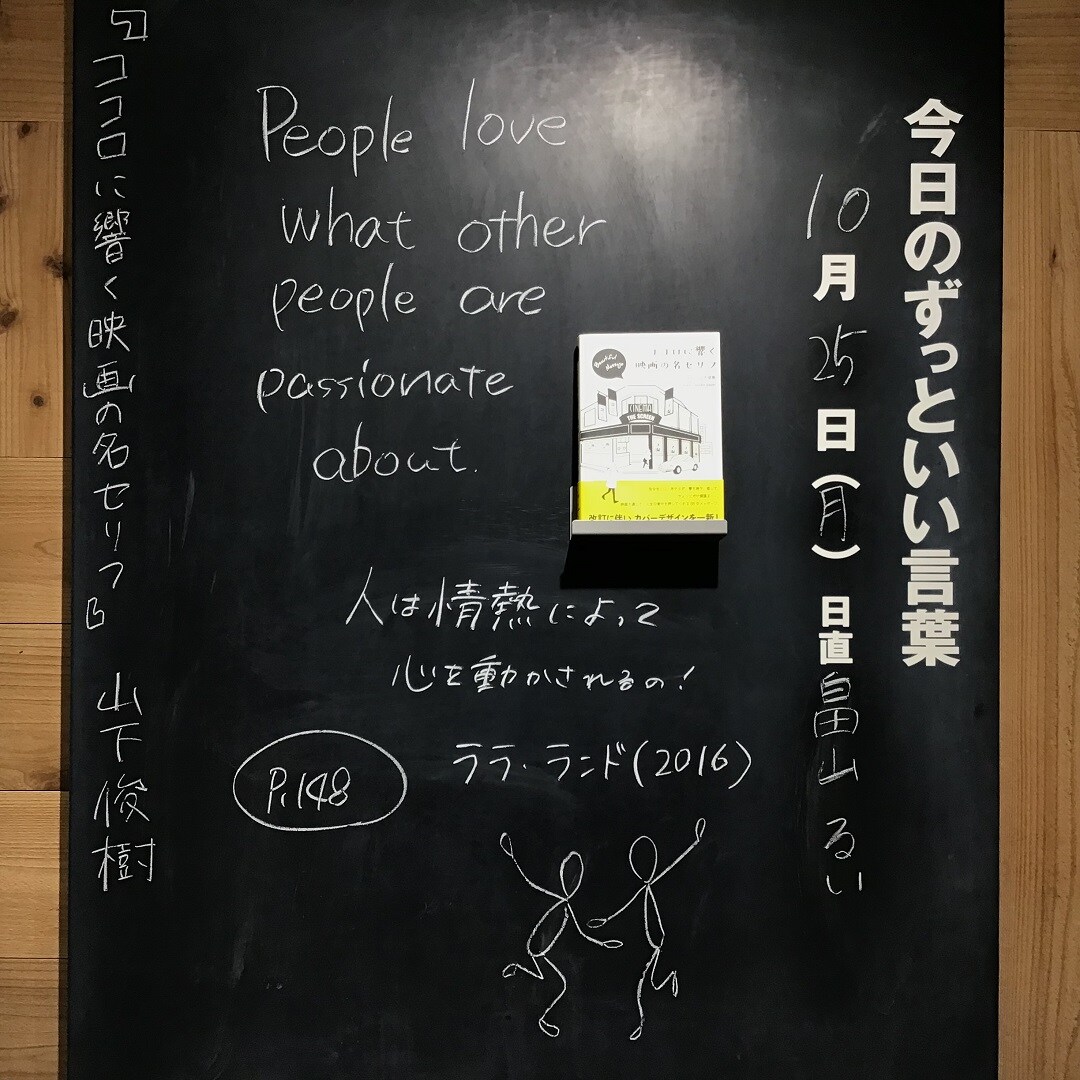 今日のずっといい言葉
10月25日(月) 日直 畠山 るい
People love
what other
people are
passionate
about.
ココロに響く
映画の名セリフ
Beautiful
CINEMA
THE SCREEN
改訂に伴いカバーデザインを一新!
人は情熱によって
心を動かされるの!
ララ・ランド(2016)
P.148
『ココロに響く映画の名セリフ』 山下俊樹